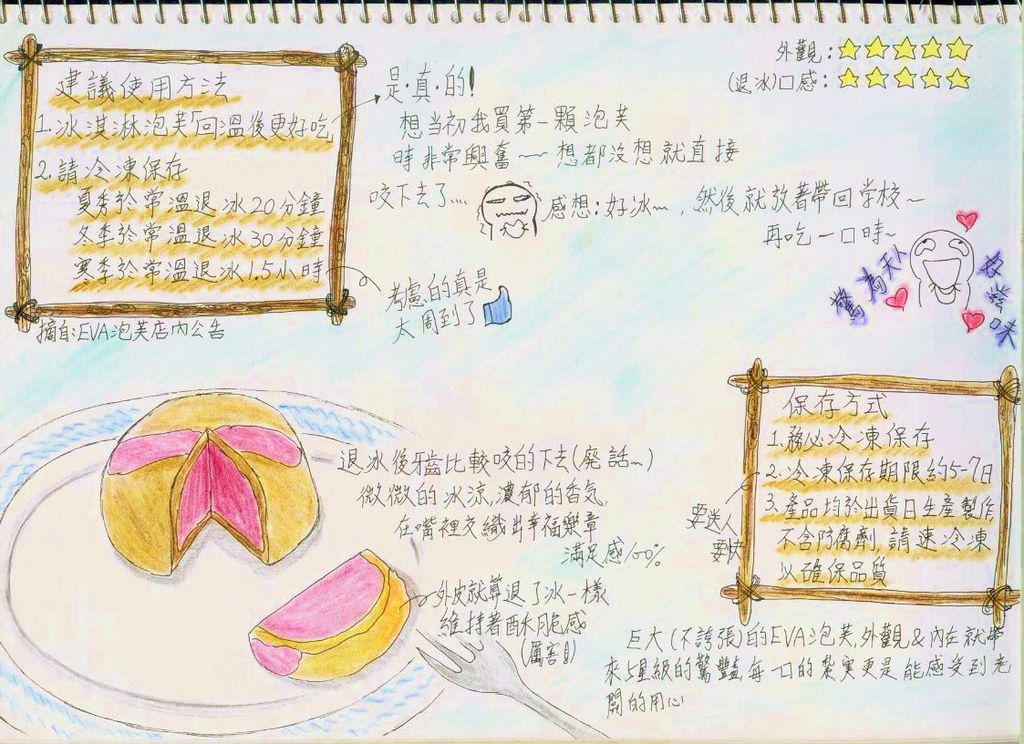 建議使用方法
1.冰淇淋泡芙「回溫後更好吃」
2.請冷凍保存
夏季於常溫退冰20分鐘
冬季於常溫退冰30分鐘
寒季於常溫退冰1.5小時
摘自:EVA泡芙店內公告
外觀:☆☆☆☆☆
(退冰)口感:☆☆☆☆☆
是·真·的!
想當初我買第一顆泡芙
時非常興奮~~想都沒想就直接
咬下去了....
感想:好冰~,然後就放著帶回学校~
再吃一口時~
驚為天人
的美味
考慮的真是
太周到了
退冰後牙齒比較咬的下去(廢話~)
微微的冰涼,濃郁的香氣,
在嘴裡交織出幸福樂章
滿足感100%
外皮就算退了冰一樣
維持著酥脆感
(厲害!)
保存方式
1.務必冷凍保存
2.冷凍保存期限約5-7日
3.產品均於出貨日生產製作
不含防腐劑,請速冷凍
以確保品質
要送人
要快
巨大(不誇張)的EVA泡芙,外觀&內在就帶
來5星級的驚豔,每一口的紮實更是能感受到老
闆的用心